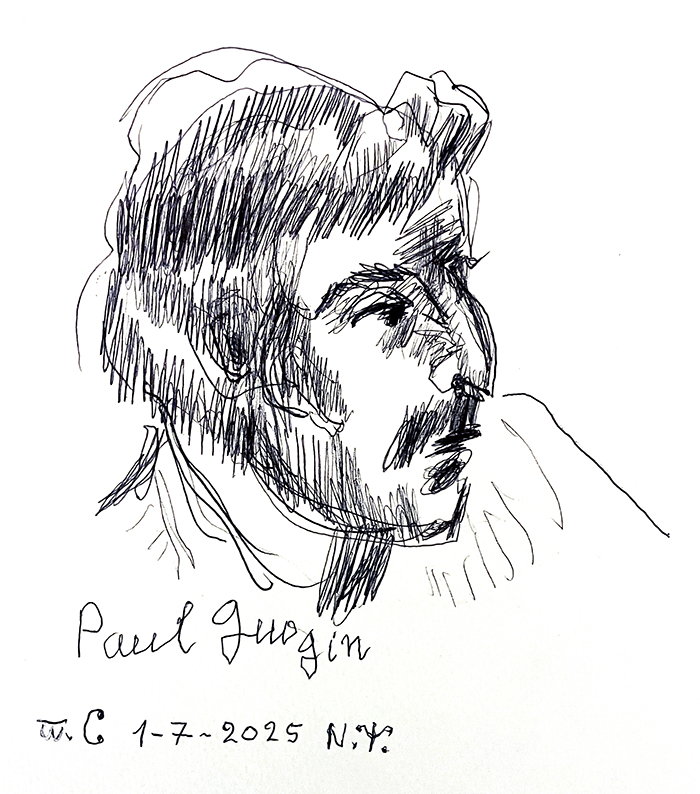 Paul Guogin
Ш. С 1-7-2025 N.Y.